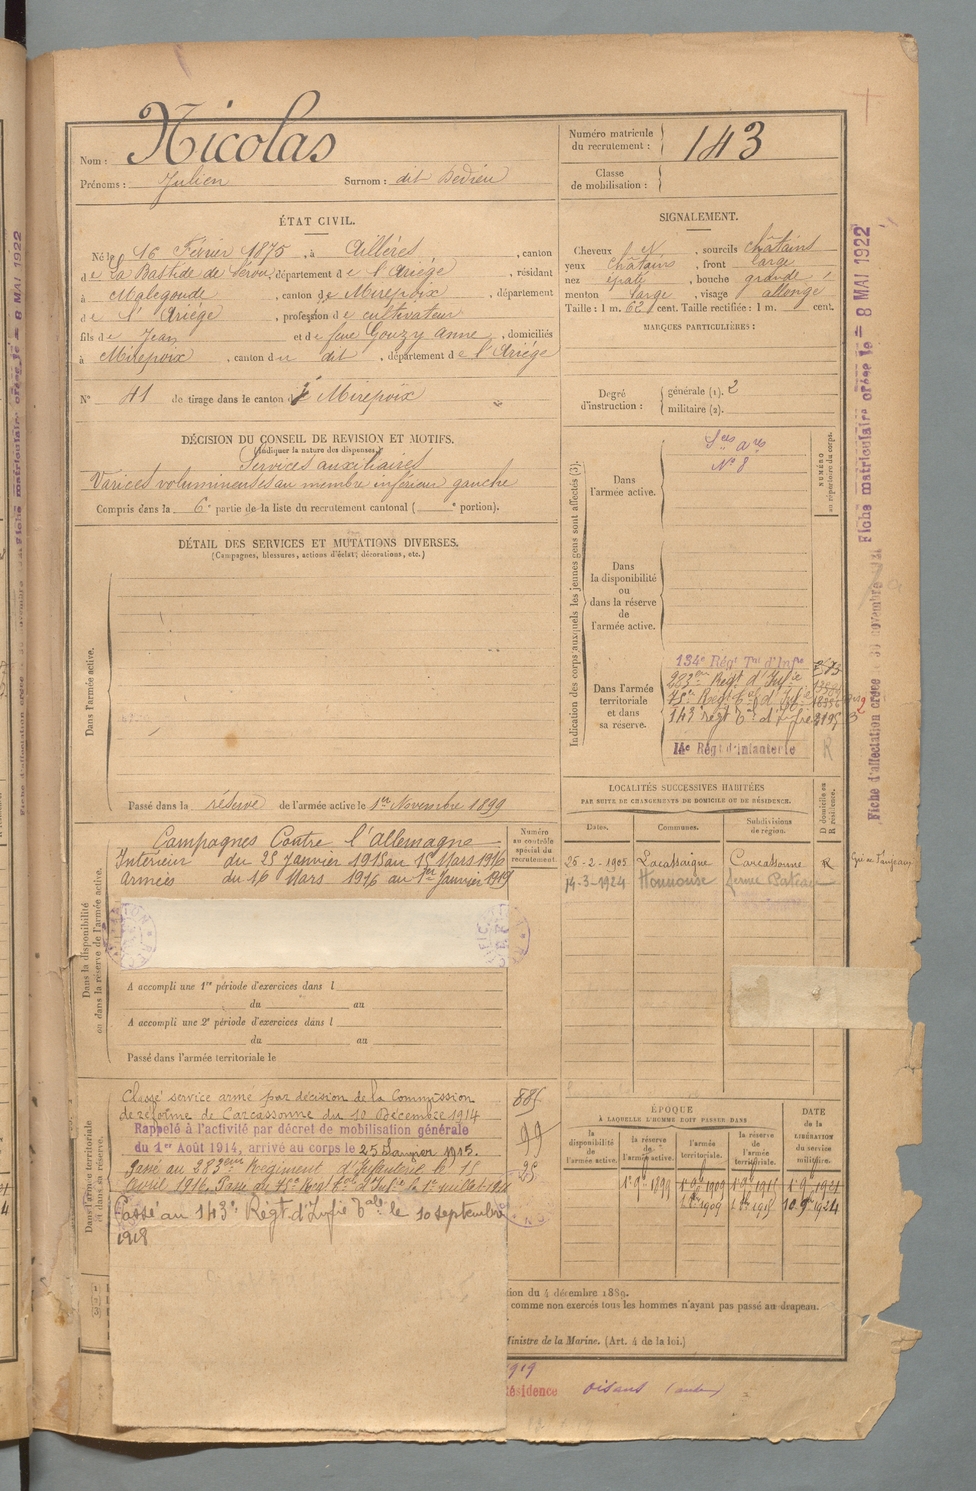 Nom : Nicolas
Prénoms : Julien Surnom : dit Dedieu
Numéro matricule du recrutement : 143
Classe de mobilisation :
ÉTAT CIVIL.
Né le 16 Février 1875, à Aillères, canton
de La Bastide de Sérou, département de l'Ariège, résidant
à Malegoude, canton de Mirepoix, département
de l'Ariège, profession de cultivateur
fils de Jean et de feue Gouzy Anne, domiciliés
à Mirepoix, canton du dit, département de l'Ariége
N° 41 de tirage dans le canton de Mirepoix
SIGNALEMENT.
Cheveux N, sourcils châtains
yeux châtains, front large
nez épaté, bouche grande
menton large, visage allongé
Taille : 1 m. 62 cent. Taille rectifiée : 1 m. cent.
MARQUES PARTICULIÈRES :
Degré d'instruction : générale (1). 2
militaire (2).
DÉCISION DU CONSEIL DE REVISION ET MOTIFS.
(Indiquer la nature des dispenses.)
Services auxiliaires
Varices volumineuses au membre inférieur gauche
Compris dans la 6e partie de la liste du recrutement cantonal ( e portion).
DÉTAIL DES SERVICES ET MUTATIONS DIVERSES.
(Campagnes, blessures, actions d'éclat, décorations, etc.)
Dans l'armée active.
Passé dans la réserve de l'armée active le 1er Novembre 1899
Indication des corps auxquels les jeunes gens sont affectés (3).
NUMÉRO au répertoire du corps.
Dans l'armée active.
Ses ares
N° 8
Dans la disponibilité ou dans la réserve de l'armée active.
Dans l'armée territoriale et dans sa réserve.
134e Régt Trial d'Infie
283eme Regt d'Infie
75e Regt tal d'Infie
143e régt tal d'Infie
14e Régt d'Infanterie R
Dans la disponibilité ou dans la réserve de l'armée active.
Campagnes Contre l'Allemagne
Intérieur du 25 Janvier 1915 au 15 Mars 1916
Armées du 16 Mars 1916 au 1er Janvier 1919
Numéro au contrôle spécial du recrutement.
A accompli une 1re période d'exercices dans l
du au
A accompli une 2e période d'exercices dans l
du au
Passé dans l'armée territoriale le
LOCALITÉS SUCCESSIVES HABITÉES
PAR SUITE DE CHANGEMENTS DE DOMICILE OU DE RÉSIDENCE.
D domicile ou R résidence.
Dates. Communes. Subdivisions de région.
26-2-1905 Lacassaigne Carcassonne R
14-3-1924 ferme
Dans l'armée territoriale et dans sa réserve.
Classé service armé par décision de la Commission
de réforme de Carcassonne du 10 Décembre 1914
Rappelé à l'activité par décret de mobilisation générale
du 1er Août 1914, arrivé au corps le 25 Janvier 1915.
Passé au 283eme Régiment d'Infanterie le 15
Avril 1916. Passé au 75e Regt tal d'Infie le 1er juillet
Passé au 143e Régt d'Infie tale le 10 septembre
1918
885
99
25
ÉPOQUE
À LAQUELLE L'HOMME DOIT PASSER DANS
DATE DE LA LIBÉRATION du service militaire.
la disponibilité de l'armée active. la réserve de l'armée active. l'armée territoriale. la réserve de l'armée territoriale.
1er 9bre 1899
1er 8bre 1909
10 9bre 1924
tion du 4 décembre 1889.
comme non exercés tous les hommes n'ayant pas passé au drapeau.
Ministre de la Marine. (Art. 4 de la loi.)
Résidence
Fiche matriculaire créée le 8 MAI 1922
Fiche d'affectation créée le novembre